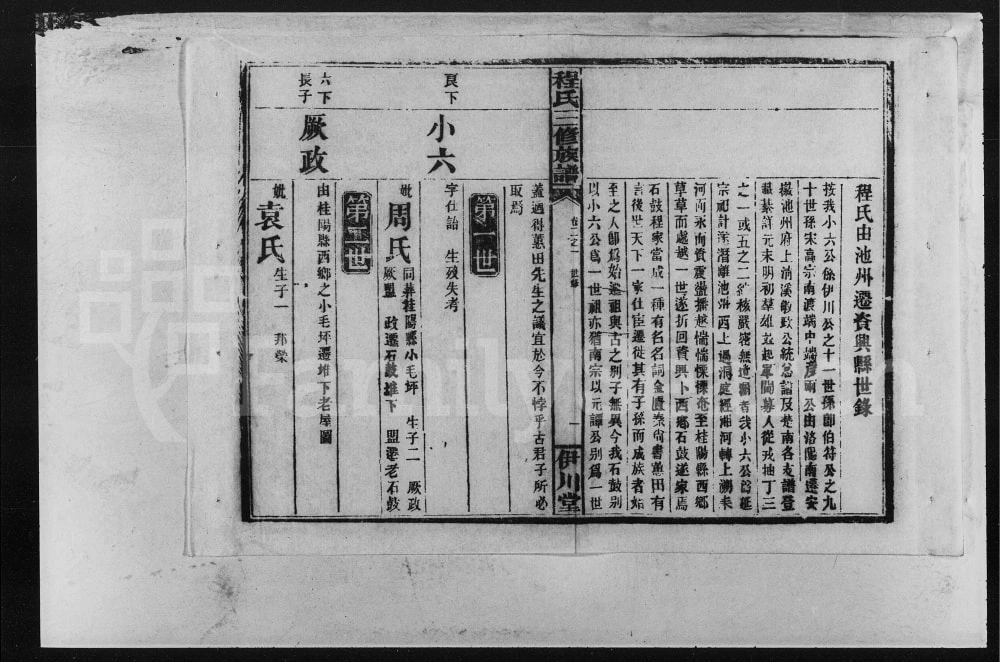 程氏由池州遷資興縣世錄
按我小六公係伊川公之十一世孫卽伯符公之九
十世孫宋高宗南渡端中端彥兩公由洛陽南遷安
徽池州府上清溪敏政公統譜及楚南各支譜登
載綦詳元末明初羣雄並起軍閥募人從戎抽丁三
之一或五之二綜核嚴密無遺類者我小六公爲延
宗祀計潛離池洲西上過洞庭經湘河轉上耒
河南永而資震盪播越惴惴慄慄奄至桂陽縣西鄉
草草而越一世遂折回資興卜西鄉石鼓遂家焉
石鼓程家當成一種有名名詞金匱秦尙書蕙田有
言後世天下一家仕宦遷徙其有子孫而成族者始
至之人卽爲始遷祖與古之別子無異今我石鼓別
以小六公爲一世祖亦猶南宗以元譚公別爲一世
程氏三修族譜
卷二之一 世錄
一
伊川堂
蓋遵得蕙田先生之議宜於今不悖乎古君子所必
取焉
第一世
良下
小六
字仕詒 生殁失考
妣周氏 同葬桂陽縣小毛坪 生子二 厥政
厥盟 政遷石鼓堆下 盟遷老石鼓
第二世
六下
長子
厥政
由桂陽縣西鄉之小毛坪遷堆下老屋圖
妣袁氏 生子一 邦榮